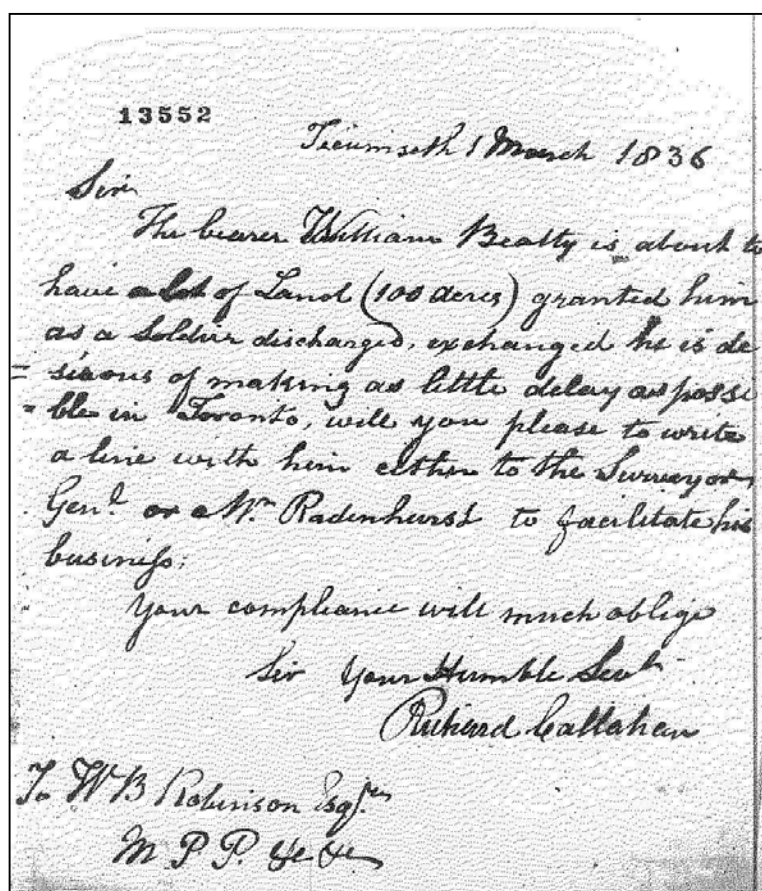 13552
Tecumseth 1 March 1836
Sir
The bearer William Beatty is about to
have a lot of Land (100 acres) granted him
as a Soldier discharged, exchanged he is de
= sirous of making as little delay as possi
= ble in Toronto, will you please to write
a line with him either to the Surveyor
Genl. or a Mr. Radenhurst to facilitate his
business;
Your compliance will much oblige
Sir Your Humble Servt
Richard Callahan
To W B Robinson Esqr.
M. P. P. &c &c